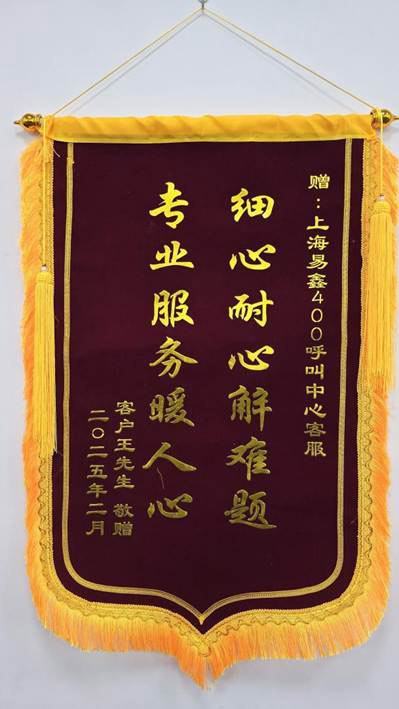 赠：上海易鑫400呼叫中心客服
细心耐心解难题
专业服务暖人心
客户王先生 敬赠
二〇二五年二月